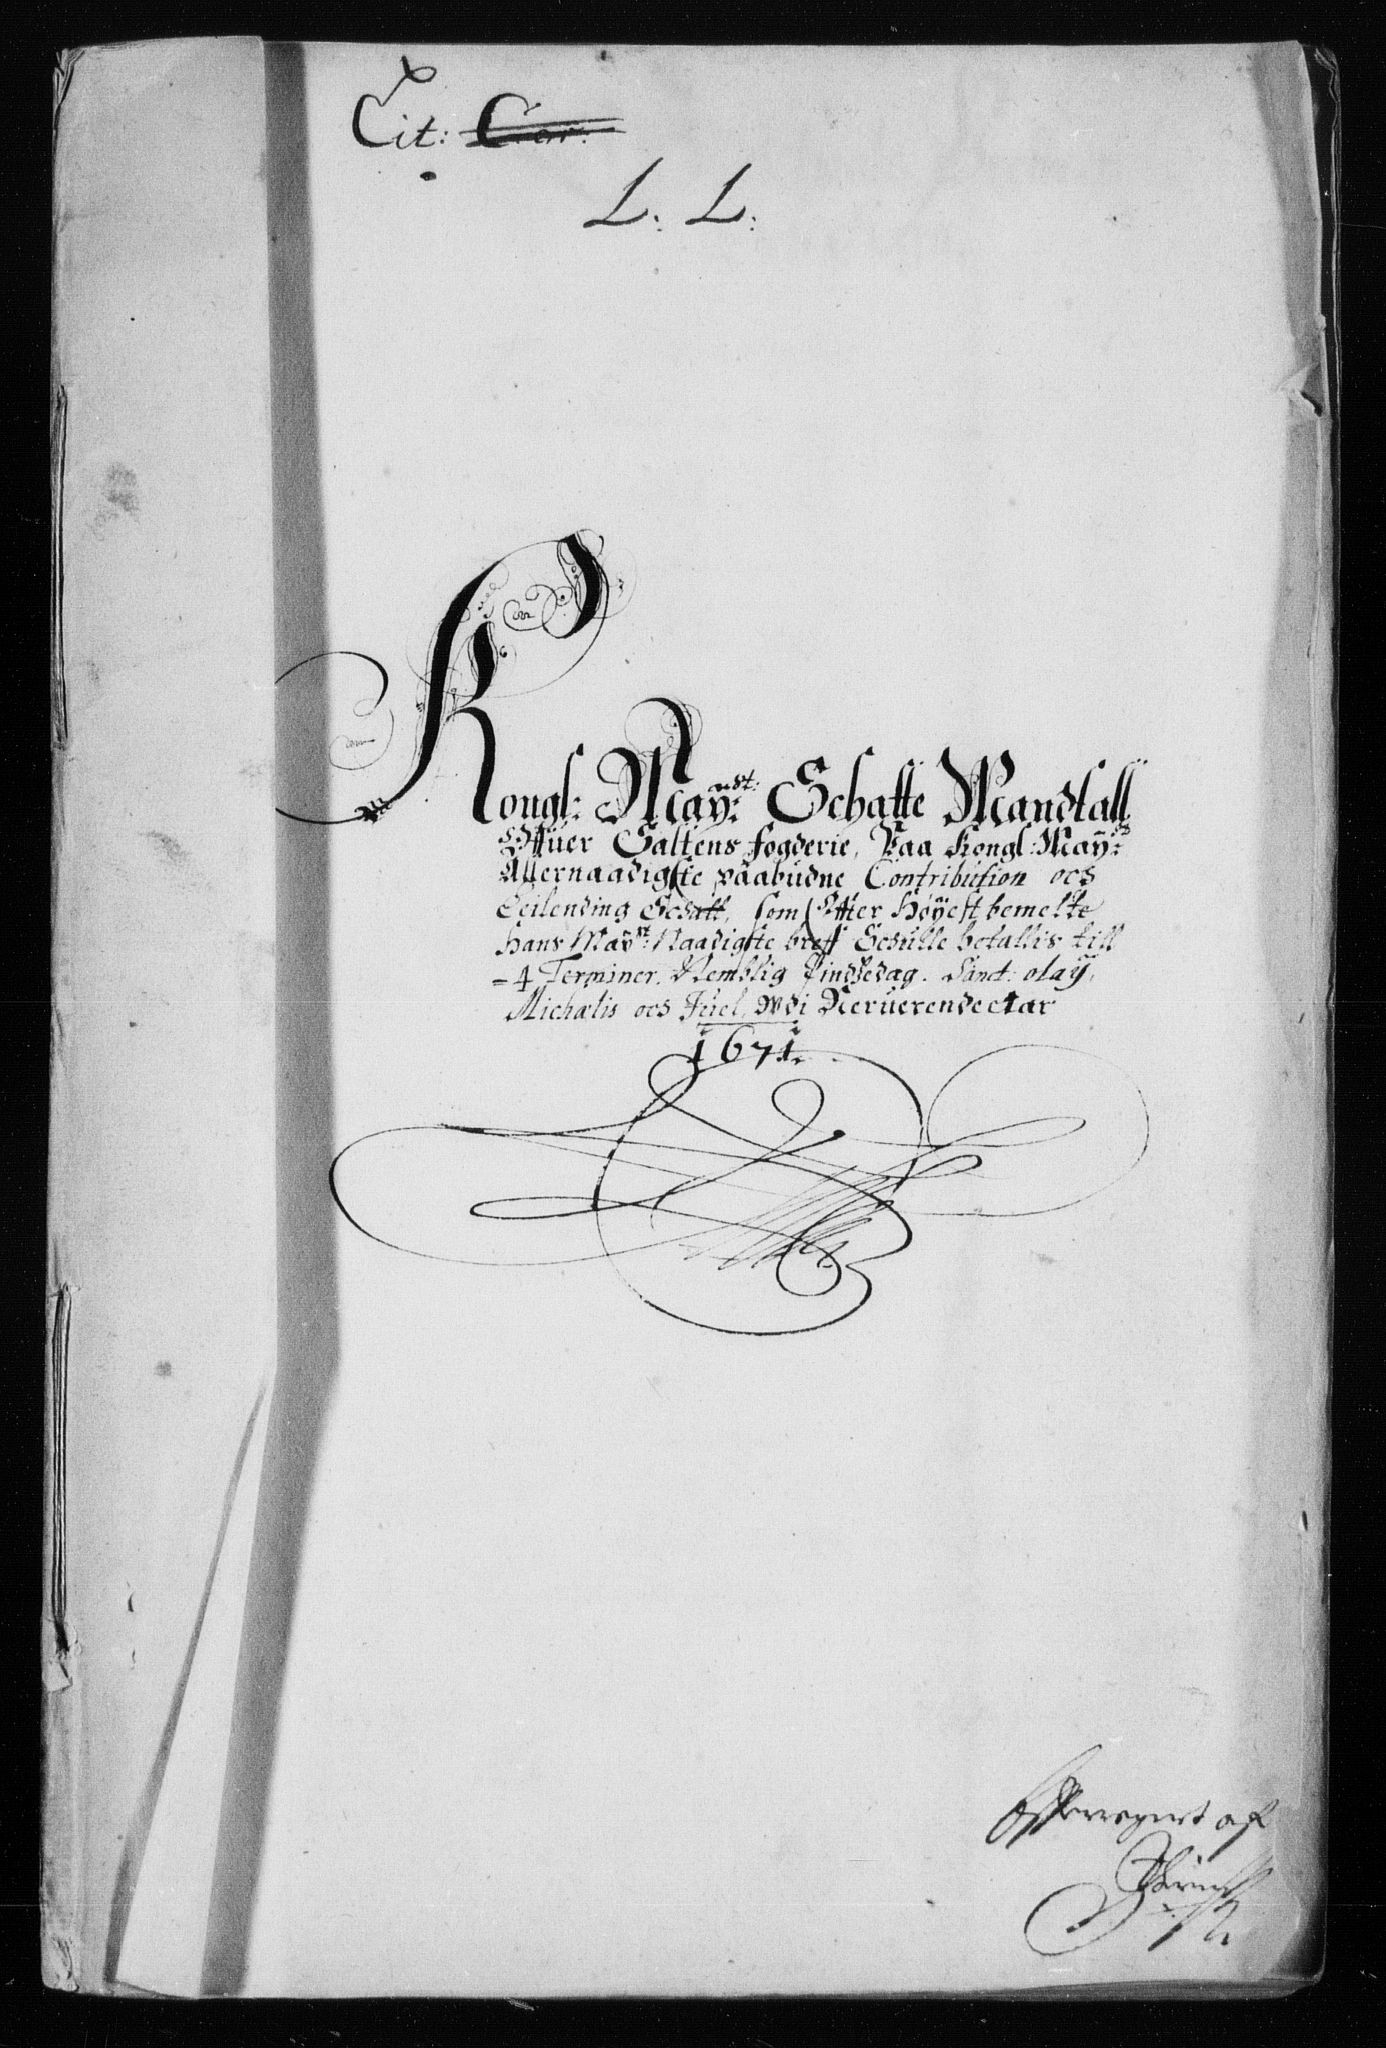 Cit: Cor.
L. L.
Kongl: May:dst: Schatte Mandtall
Offuer Saltens fogderie, Paa Kongl: May:ds
Allernaadigste paabudne Contribution och
Leilending Schatt, som Effter høyest bemelte
hans May:st: Naadigste breff Schulle betallis till
4 Terminer. Nemblig Pindsedag. Sanct: olaÿ,
Michælis och Juel, Udi Neruerendectar
1671.
Effterregnet af